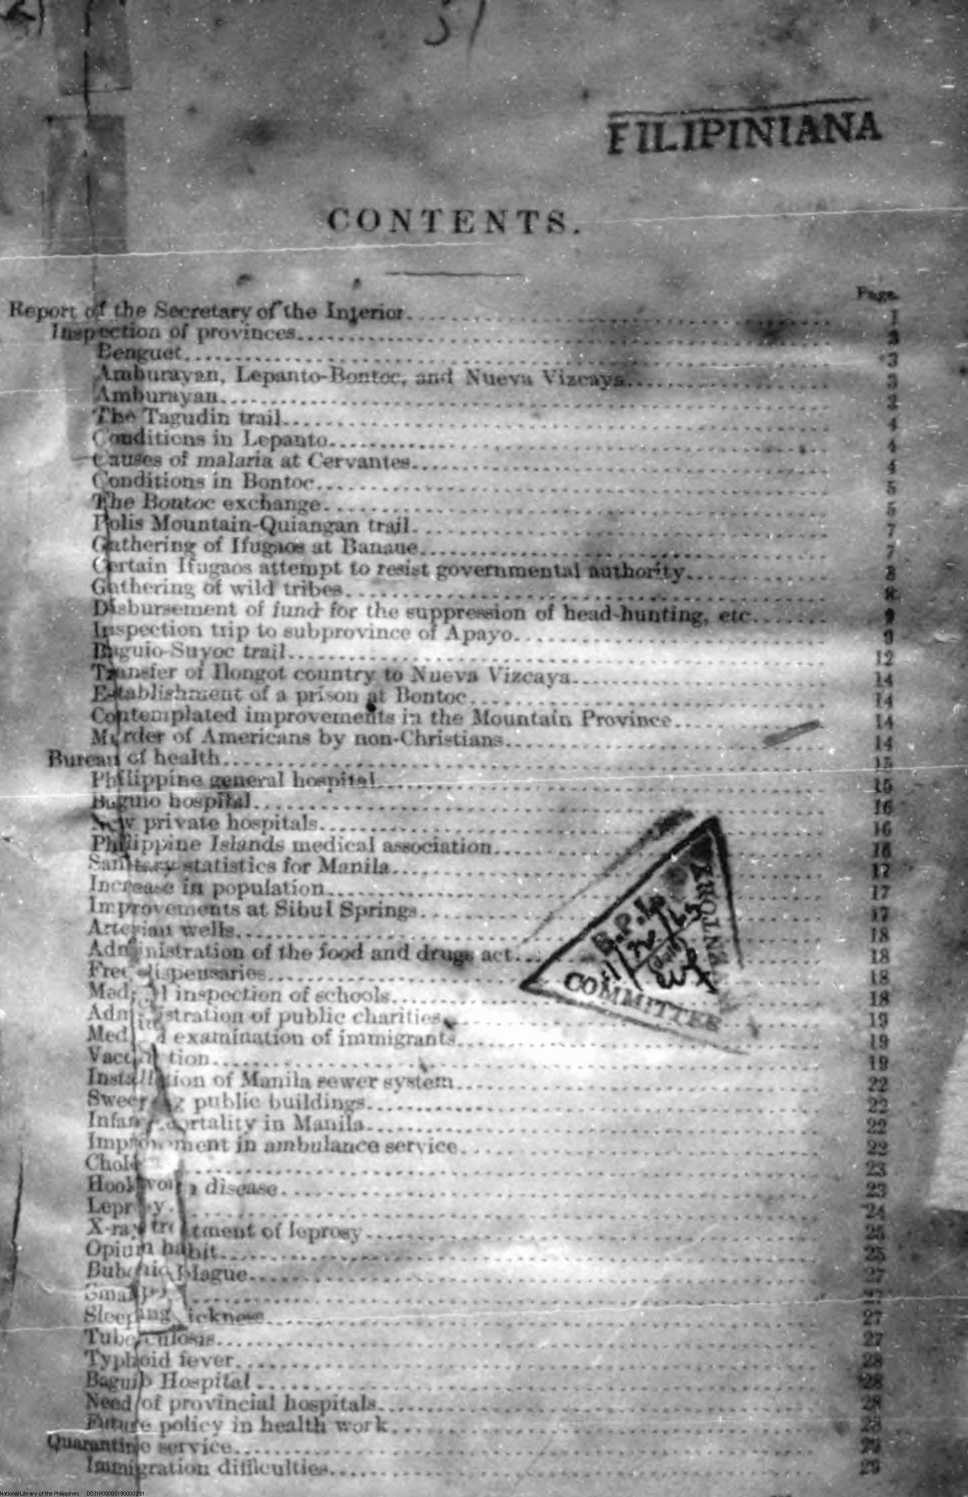 51
FILIPINIANA
CONTENTS.
Page.
Report of the Secretary of the Interior 1
Inspection of provinces 3
Benguet 3
Amburayan, Lepanto-Bontoc, and Nueva Vizcaya 3
Amburayan 3
The Tagudin trail 4
Conditions in Lepanto 4
Causes of malaria at Cervantes 4
Conditions in Bontoc 5
The Bontoc exchange 5
Polis Mountain-Quiangan trail 7
Gathering of Ifugaos at Banaue 7
Certain Ifugaos attempt to resist governmental authority 8
Gathering of wild tribes 8
Disbursement of fund for the suppression of head-hunting, etc 9
Inspection trip to subprovince of Apayo 9
Baguio-Suyoc trail 12
Transfer of Ilongot country to Nueva Vizcaya 14
Establishment of a prison at Bontoc 14
Contemplated improvements in the Mountain Province 14
Murder of Americans by non-Christians 14
Bureau of health 15
Philippine general hospital 15
Baguio hospital 16
New private hospitals 16
Philippine Islands medical association 16
Sanitary statistics for Manila 17
Increase in population 17
Improvements at Sibul Springs 17
Artesian wells 18
Administration of the food and drugs act 18
Free dispensaries 18
Medical inspection of schools 18
Administration of public charities 19
Medical examination of immigrants 19
Vaccination 19
Installation of Manila sewer system 22
Sweeping public buildings 22
Infant mortality in Manila 22
Improvement in ambulance service 22
Cholera 23
Hookworm disease 23
Leprosy 24
X-ray treatment of leprosy 25
Opium habit 25
Bubonic plague 27
Smallpox 27
Sleeping sickness 27
Tuberculosis 27
Typhoid fever 28
Baguio Hospital 28
Need of provincial hospitals 28
Future policy in health work 28
Quarantine service 29
Immigration difficulties 29
B.P.L.
COMMITTEE
National Library of the Philippines